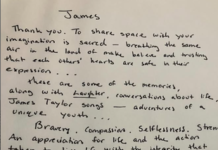 James
Thank you. To share space with your
imagination is sacred - breathing the same
air in the land of make believe and trusting
that each others' hearts are safe in their
expression...
These are some of the memories,
along with laughter, conversations about life,
James Taylor songs - adventures of a
unique youth...
Bravery, Compassion, Selflessness, Stren
An appreciation for life and the action